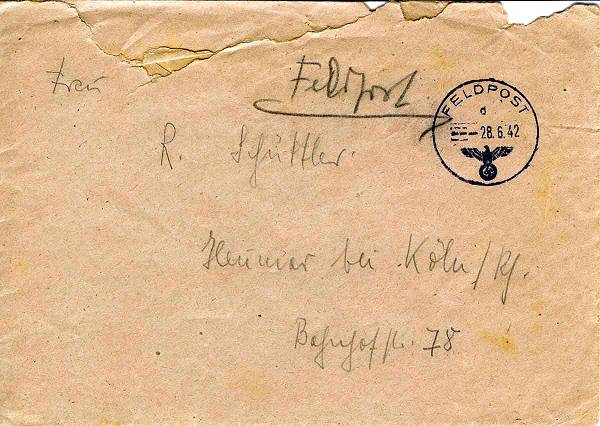 Feldpost
FELDPOST
d
28.6.42
Frau
R. Schüttler.
Heumar bei Köln/Rh.
Bahnhofstr. 78